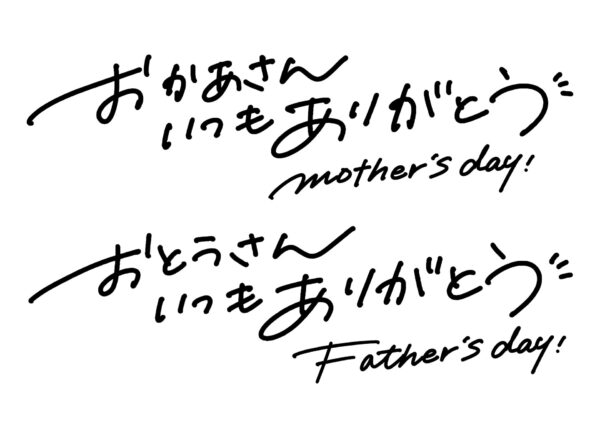 おかあさん
いつもありがとう
mother's day!
おとうさん
いつもありがとう
Father's day!